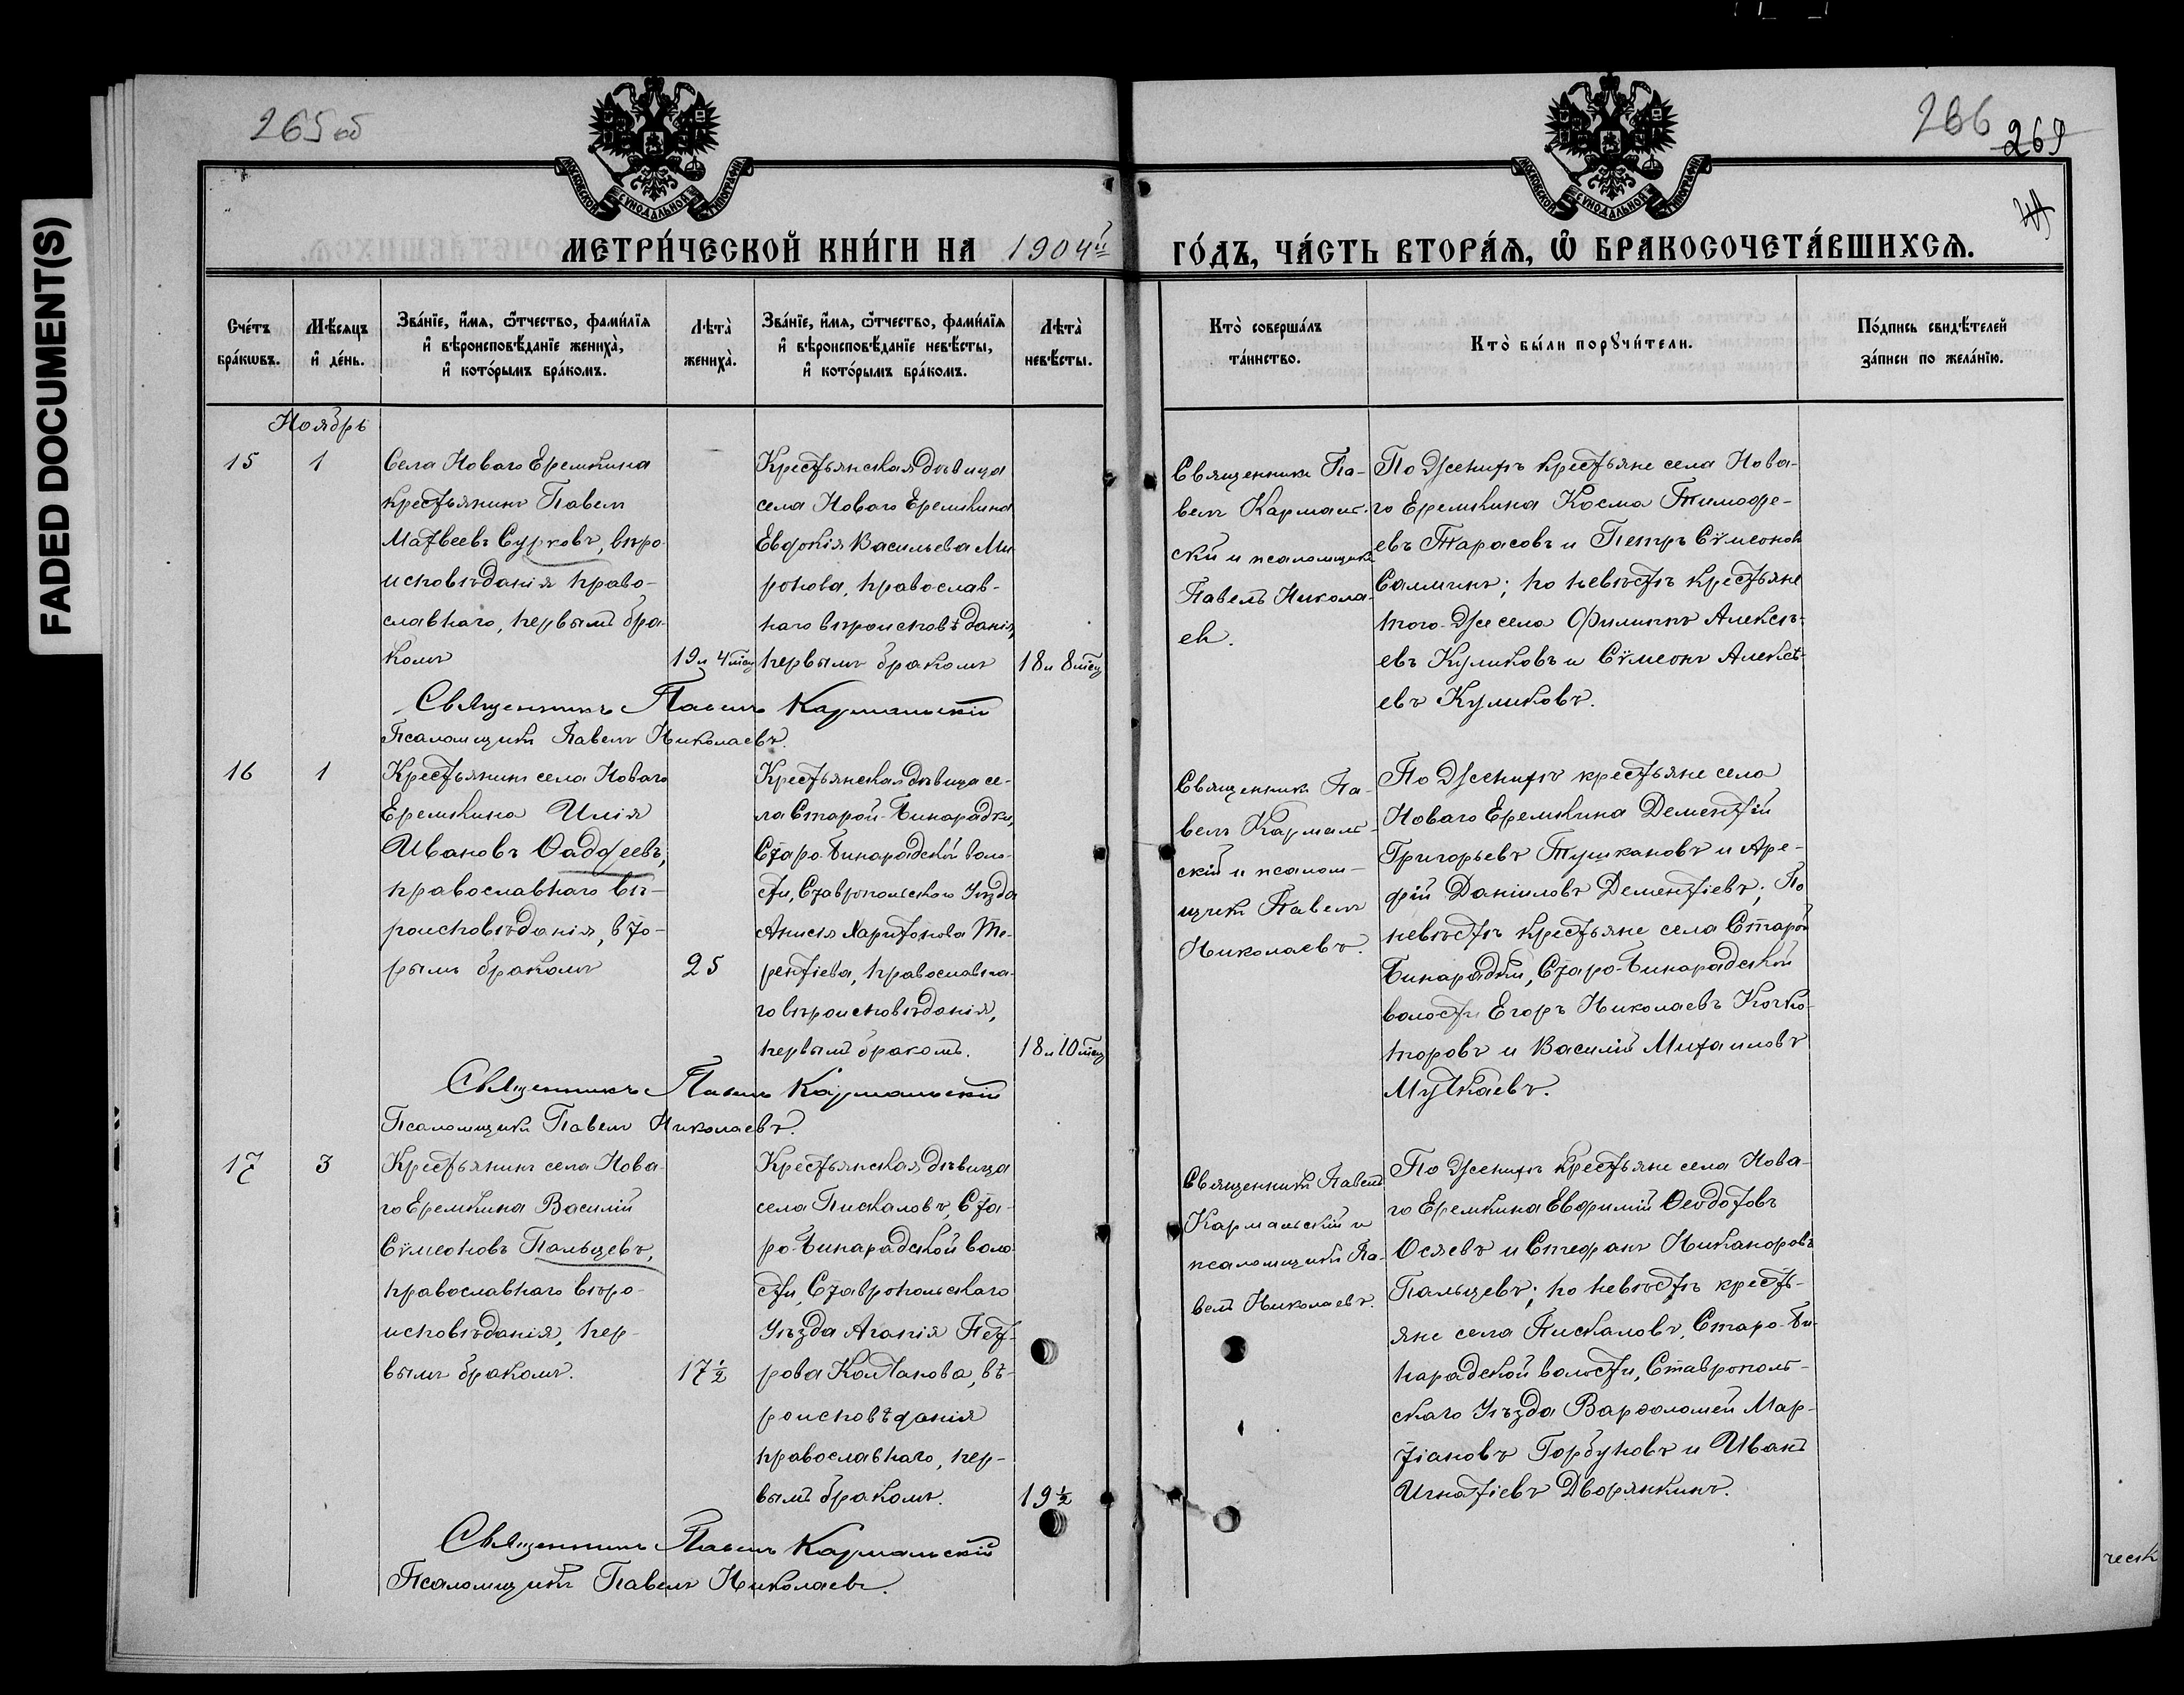 FADED DOCUMENT(S)
265 об
266
269
МОСКОВСКОЙ СѴНОДАЛЬНОЙ ТИПОГРАФІИ
МОСКОВСКОЙ СѴНОДАЛЬНОЙ ТИПОГРАФІИ
МЕТРИ́ЧЕСКОЙ КНИ́ГИ НА 1904й
ГО́ДЪ, ЧА́СТЬ ВТОРА́Ѧ, Ѽ БРАКОСОЧЕТА́ВШИХСѦ.
Сче́тъ
бра́кѡвъ.
Мѣ́сяцъ
и҆ де́нь.
Зва́нїе, и҆́мя, ѻ҆́тчество, фами́лїя
и҆ вѣроисповѣ́данїе жениха̀,
и҆ кото́рымъ бра́комъ.
Лѣта̀
жениха̀.
Зва́нїе, и҆́мя, ѻ҆́тчество, фами́лїя
и҆ вѣроисповѣ́данїе невѣ́сты,
и҆ кото́рымъ бра́комъ.
Лѣта̀
невѣ́сты.
Кто̀ соверша́лъ
та́инство.
Кто̀ бы́ли порꙋчи́тели.
По́дпись свидѣ́телей
за́писи по жела́нїю.
Ноябрь
15
1
Села Новаго Еремкина
крестьянинъ Павелъ
Матвеевъ Сурковъ, вѣро-
исповѣданія право-
славнаго, первымъ бра-
комъ
19 и 4 мѣсяц
Крестьянская дѣвица
села Новаго Еремкина
Евдокія Васильева Ми
ронова, православ-
наго вѣроисповѣданія,
первымъ бракомъ
18 и 8 мѣсяц
Священникъ Па-
велъ Кармаль-
скій и псаломщикъ
Павелъ Никола-
евъ.
По женихѣ крестьяне села Нова-
го Еремкина Косма Тимофе-
евъ Тарасовъ и Петръ Сѵмеоновъ
Салминъ; по невѣстѣ крестьяне
того-же села Филиппъ Алексѣ-
евъ Куликовъ и Сѵмеонъ Алексѣ-
евъ Куликовъ.
Священникъ Павелъ Кармальскій
Псаломщикъ Павелъ Николаевъ.
16
1
Крестьянинъ села Новаго
Еремкина Илія
Ивановъ Ѳаддеевъ,
православнаго вѣ-
роисповѣданія, вто-
рымъ бракомъ
25
Крестьянская дѣвица се-
ла Старой-Бинарадки,
Старо-Бинарадской воло-
сти, Ставропольскаго Уѣзда
Анисія Харитонова Те-
рентіева, православна-
го вѣроисповѣданія,
первымъ бракомъ.
18 и 10 мѣсяц
Священникъ Па-
велъ Кармаль-
скій и псалом-
щикъ Павелъ
Николаевъ.
По женихѣ крестьяне села
Новаго Еремкина Дементій
Григорьевъ Тушкановъ и Аре-
фій Даніиловъ Дементіевъ; По
невѣстѣ крестьяне села Старой
Бинарадки, Старо-Бинарадской
волости Егоръ Николаевъ Кочко-
торовъ и Василій Михаиловъ
Муткаевъ.
Священникъ Павелъ Кармальскій
Псаломщикъ Павелъ Николаевъ.
17
3
Крестьянинъ села Нова-
го Еремкина Василій
Сѵмеоновъ Пальцевъ,
православнаго вѣро-
исповѣданія, пер-
вымъ бракомъ.
17 ½
Крестьянская дѣвица
села Пискаловъ, Ста-
ро-Бинарадской воло-
сти, Ставропольскаго
Уѣзда Агапія Пет-
рова Колтанова, вѣ-
роисповѣданія
православнаго, пер-
вымъ бракомъ.
19 ½
Священникъ Павелъ
Кармальскій и
псаломщикъ Па-
велъ Николаевъ.
По женихѣ крестьяне села Нова-
го Еремкина Евфимій Ѳеодотовъ
Осяевъ и Стефанъ Никаноровъ
Пальцевъ; по невѣстѣ кресть-
яне села Пискаловъ, Старо-Би-
нарадской волости, Ставрополь-
скаго Уѣзда Варѳоломей Мар-
тіановъ Горбуновъ и Иванъ
Игнатіевъ Дворянкинъ.
Священникъ Павелъ Кармальскій
Псаломщикъ Павелъ Николаевъ.